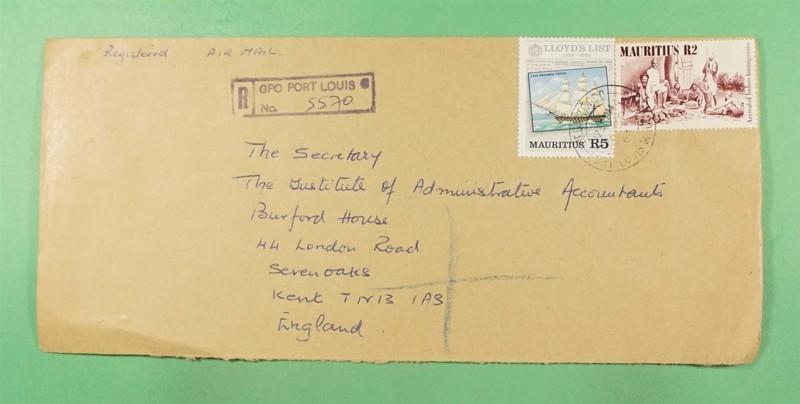 Registered AIR MAIL
R GPO PORT LOUIS
No. 5570
LLOYD'S LIST
MAURITIUS R5
MAURITIUS R2
Arrival of Indian Immigrants
The Secretary
The Institute of Administrative Accountants
Burford House
44 London Road
Sevenoaks
Kent TN13 1AS
England.